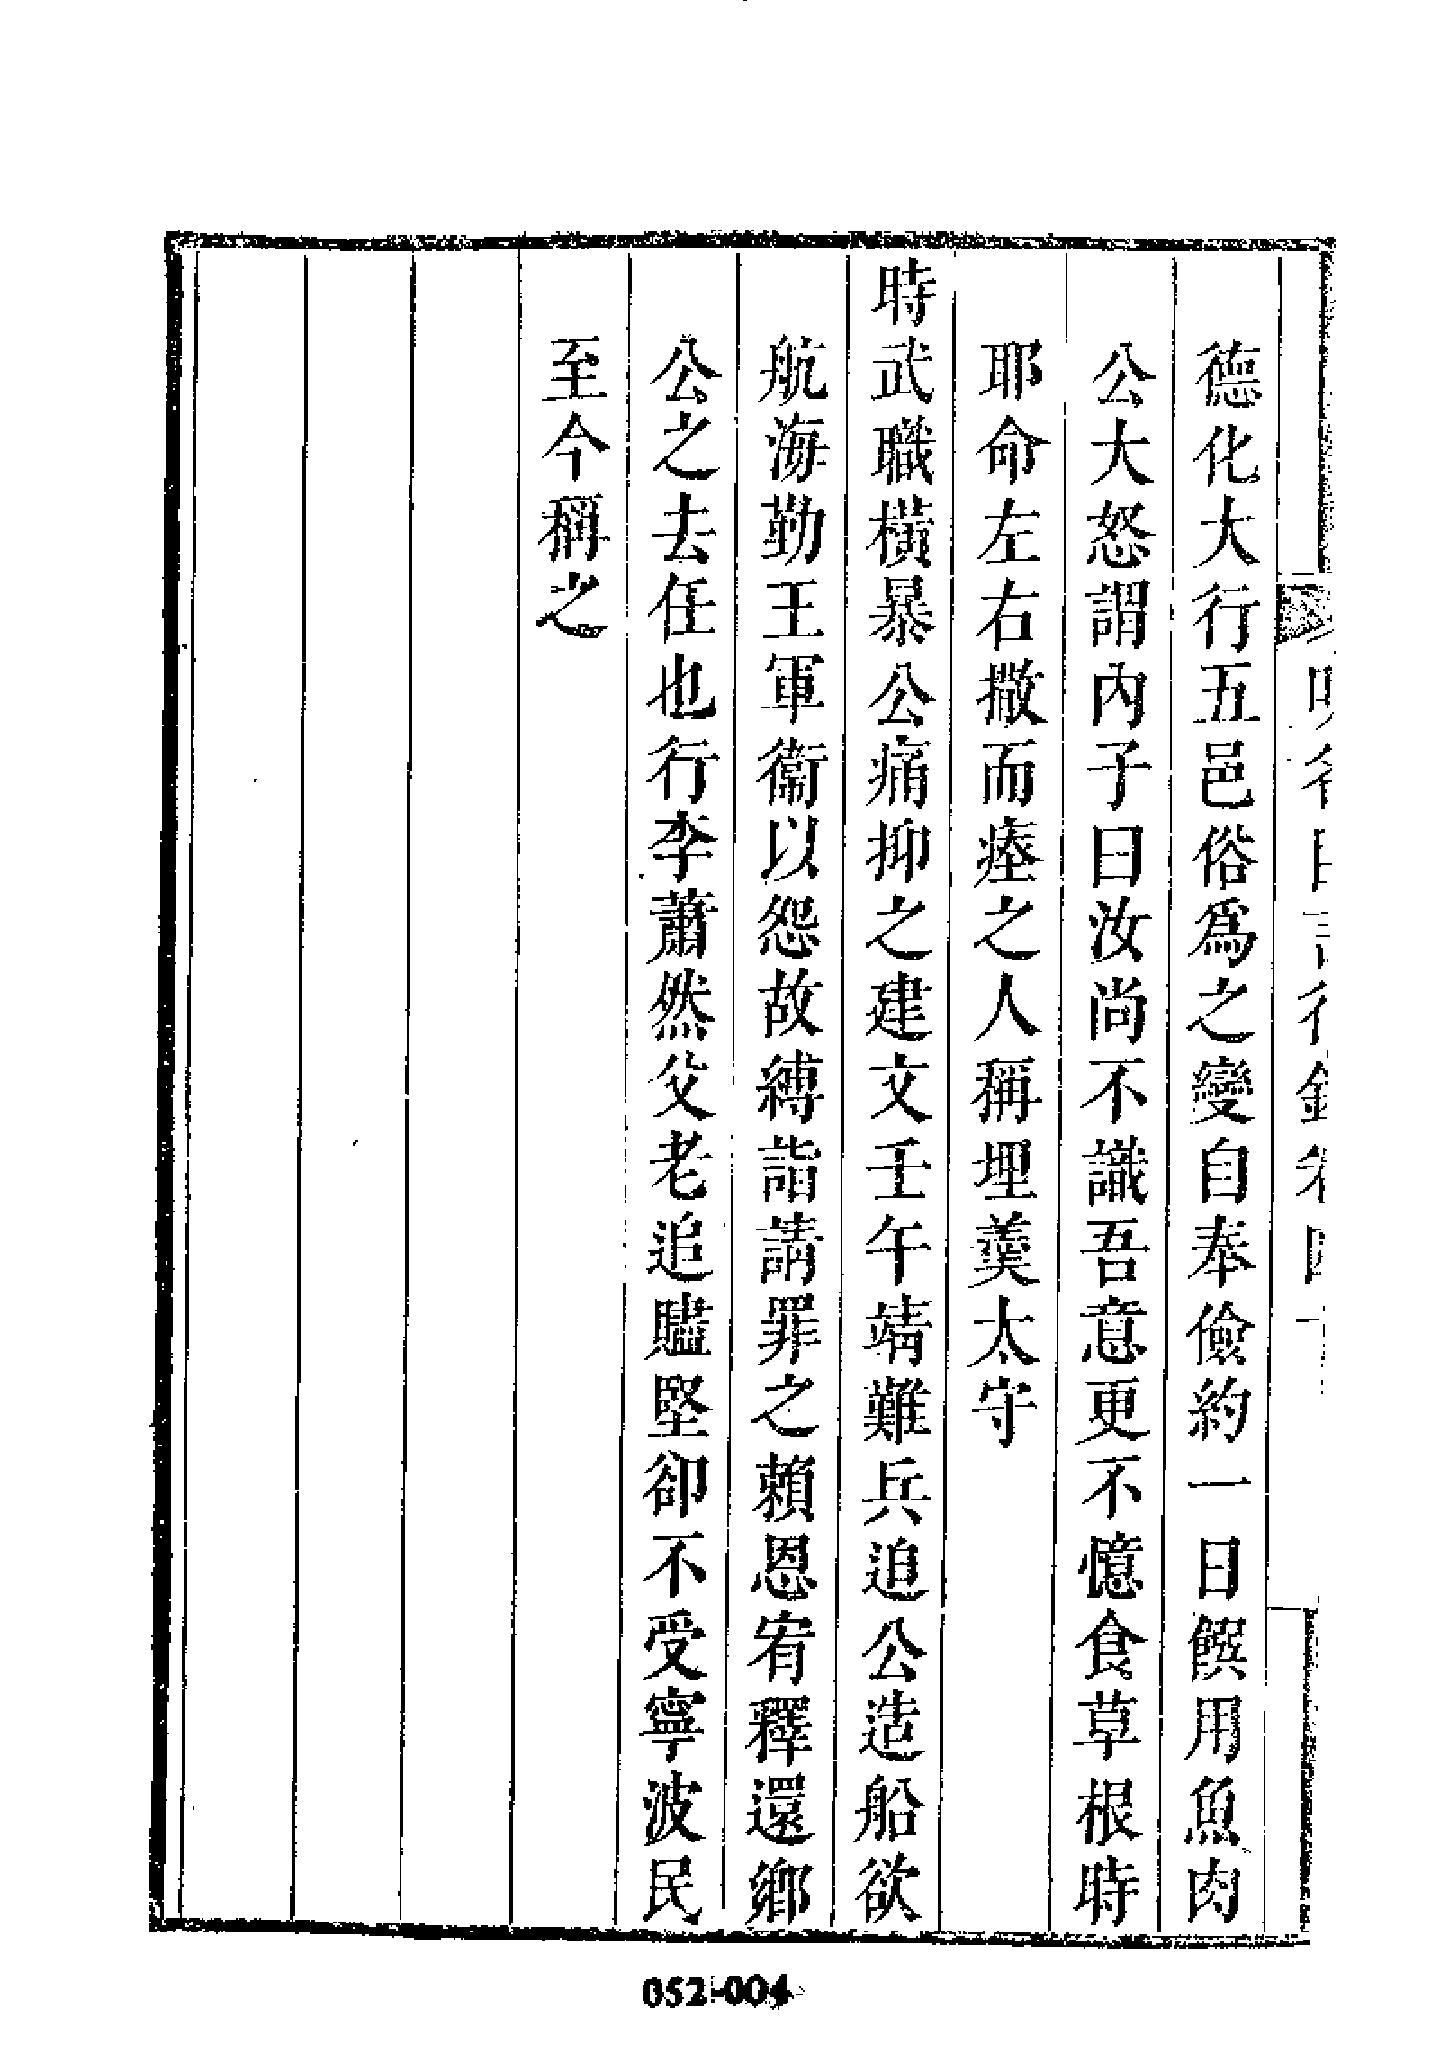 德化大行五邑俗爲之變自奉儉約一日饌用魚肉
公大怒謂內子曰汝尚不識吾意更不憶食草根時
耶命左右撤而瘞之人稱埋羹太守
時武職橫暴公痛抑之建文壬午靖難兵追公造船欲
航海勤王軍衞以怨故縛詣請罪之賴恩宥釋還鄉
公之去任也行李蕭然父老追贐堅卻不受寧波民
至今稱之
052-004